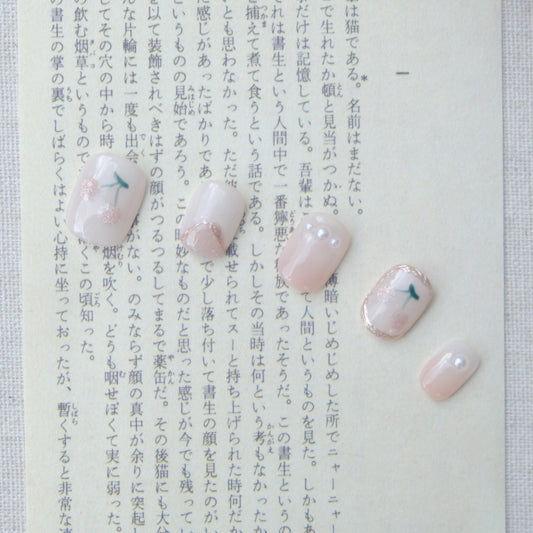 一
は猫である。名前はまだない。
で生れたか頓と見当がつかぬ。
薄暗いじめじめした所でニャーニャー
だけは記憶している。吾輩は
て人間というものを見た。しかもあ
それは書生という人間中で一番獰悪な
族であったそうだ。この書生というの
捕えて煮て食うという話である。しかしその当時は何という考もなかったか
いとも思わなかった。ただ
載せられてスーと持ち上げられた時何だか
た感じがあったばかりであ
で少し落ち付いて書生の顔を見たのがい
というものの見始であろう。この時妙なものだと思った感じが今でも残ってい
を以て装飾されべきはずの顔がつるつるしてまるで薬缶だ。その後猫にも大分
んな片輪には一度も出会
がない。のみならず顔の真中が余りに突起し
してその穴の中から時
烟を吹く。どうも咽せぽくて実に弱った。
の飲む烟草というもので
この頃知った。
の書生の掌の裏でしばらくはよい心持に坐っておったが、暫くすると非常な速